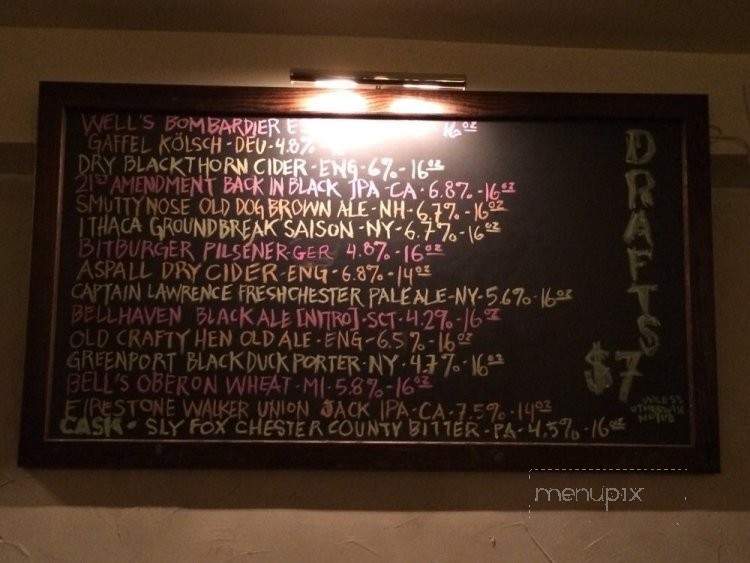 WELL'S BOMBARDIER E 16oz
GAFFEL KÖLSCH - DEU - 4.8%
DRY BLACKTHORN CIDER - ENG - 6% - 16oz
21ST AMENDMENT BACK IN BLACK IPA - CA - 6.8% - 16oz
SMUTTYNOSE OLD DOG BROWN ALE - NH - 6.7% - 16oz
ITHACA GROUNDBREAK SAISON - NY - 6.7% - 16oz
BITBURGER PILSENER - GER 4.8% - 16oz
ASPALL DRY CIDER - ENG - 6.8% - 14oz
CAPTAIN LAWRENCE FRESHCHESTER PALE ALE - NY - 5.6% - 16oz
BELLHAVEN BLACK ALE [NITRO] - SCT - 4.2% - 16oz
OLD CRAFTY HEN OLD ALE - ENG - 6.5% - 16oz
GREENPORT BLACK DUCK PORTER - NY - 4.7% - 16oz
BELL'S OBERON WHEAT - MI - 5.8% - 16oz
FIRESTONE WALKER UNION JACK IPA - CA - 7.5% - 14oz
CASK - SLY FOX CHESTER COUNTY BITTER - PA - 4.5% - 16oz
DRAFTS
$7
UNLESS
OTHERWISE
NOTED
menupix